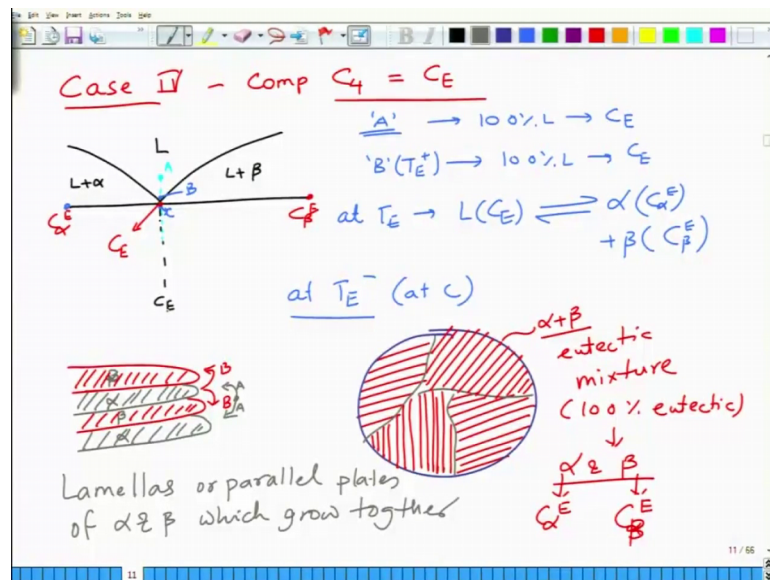 File Edit View Insert Actions Tools Help
Case IV - Comp C₄ = C_E
'A' → 100%. L → C_E
'B' (T_E⁺) → 100%. L → C_E
at T_E → L(C_E) ⇌ α(C_α^E)
+ β(C_β^E)
L
A
L+α
L+β
B
x
C_α^E
C_β^E
C_E
C_E
at T_E⁻ (at C)
α+β
eutectic
mixture
(100% eutectic)
↓
α & β
C_α^E C_β^E
β
α
β
α
B
B
A
A
Lamellas or parallel plates
of α & β which grow togther
11 / 66
11